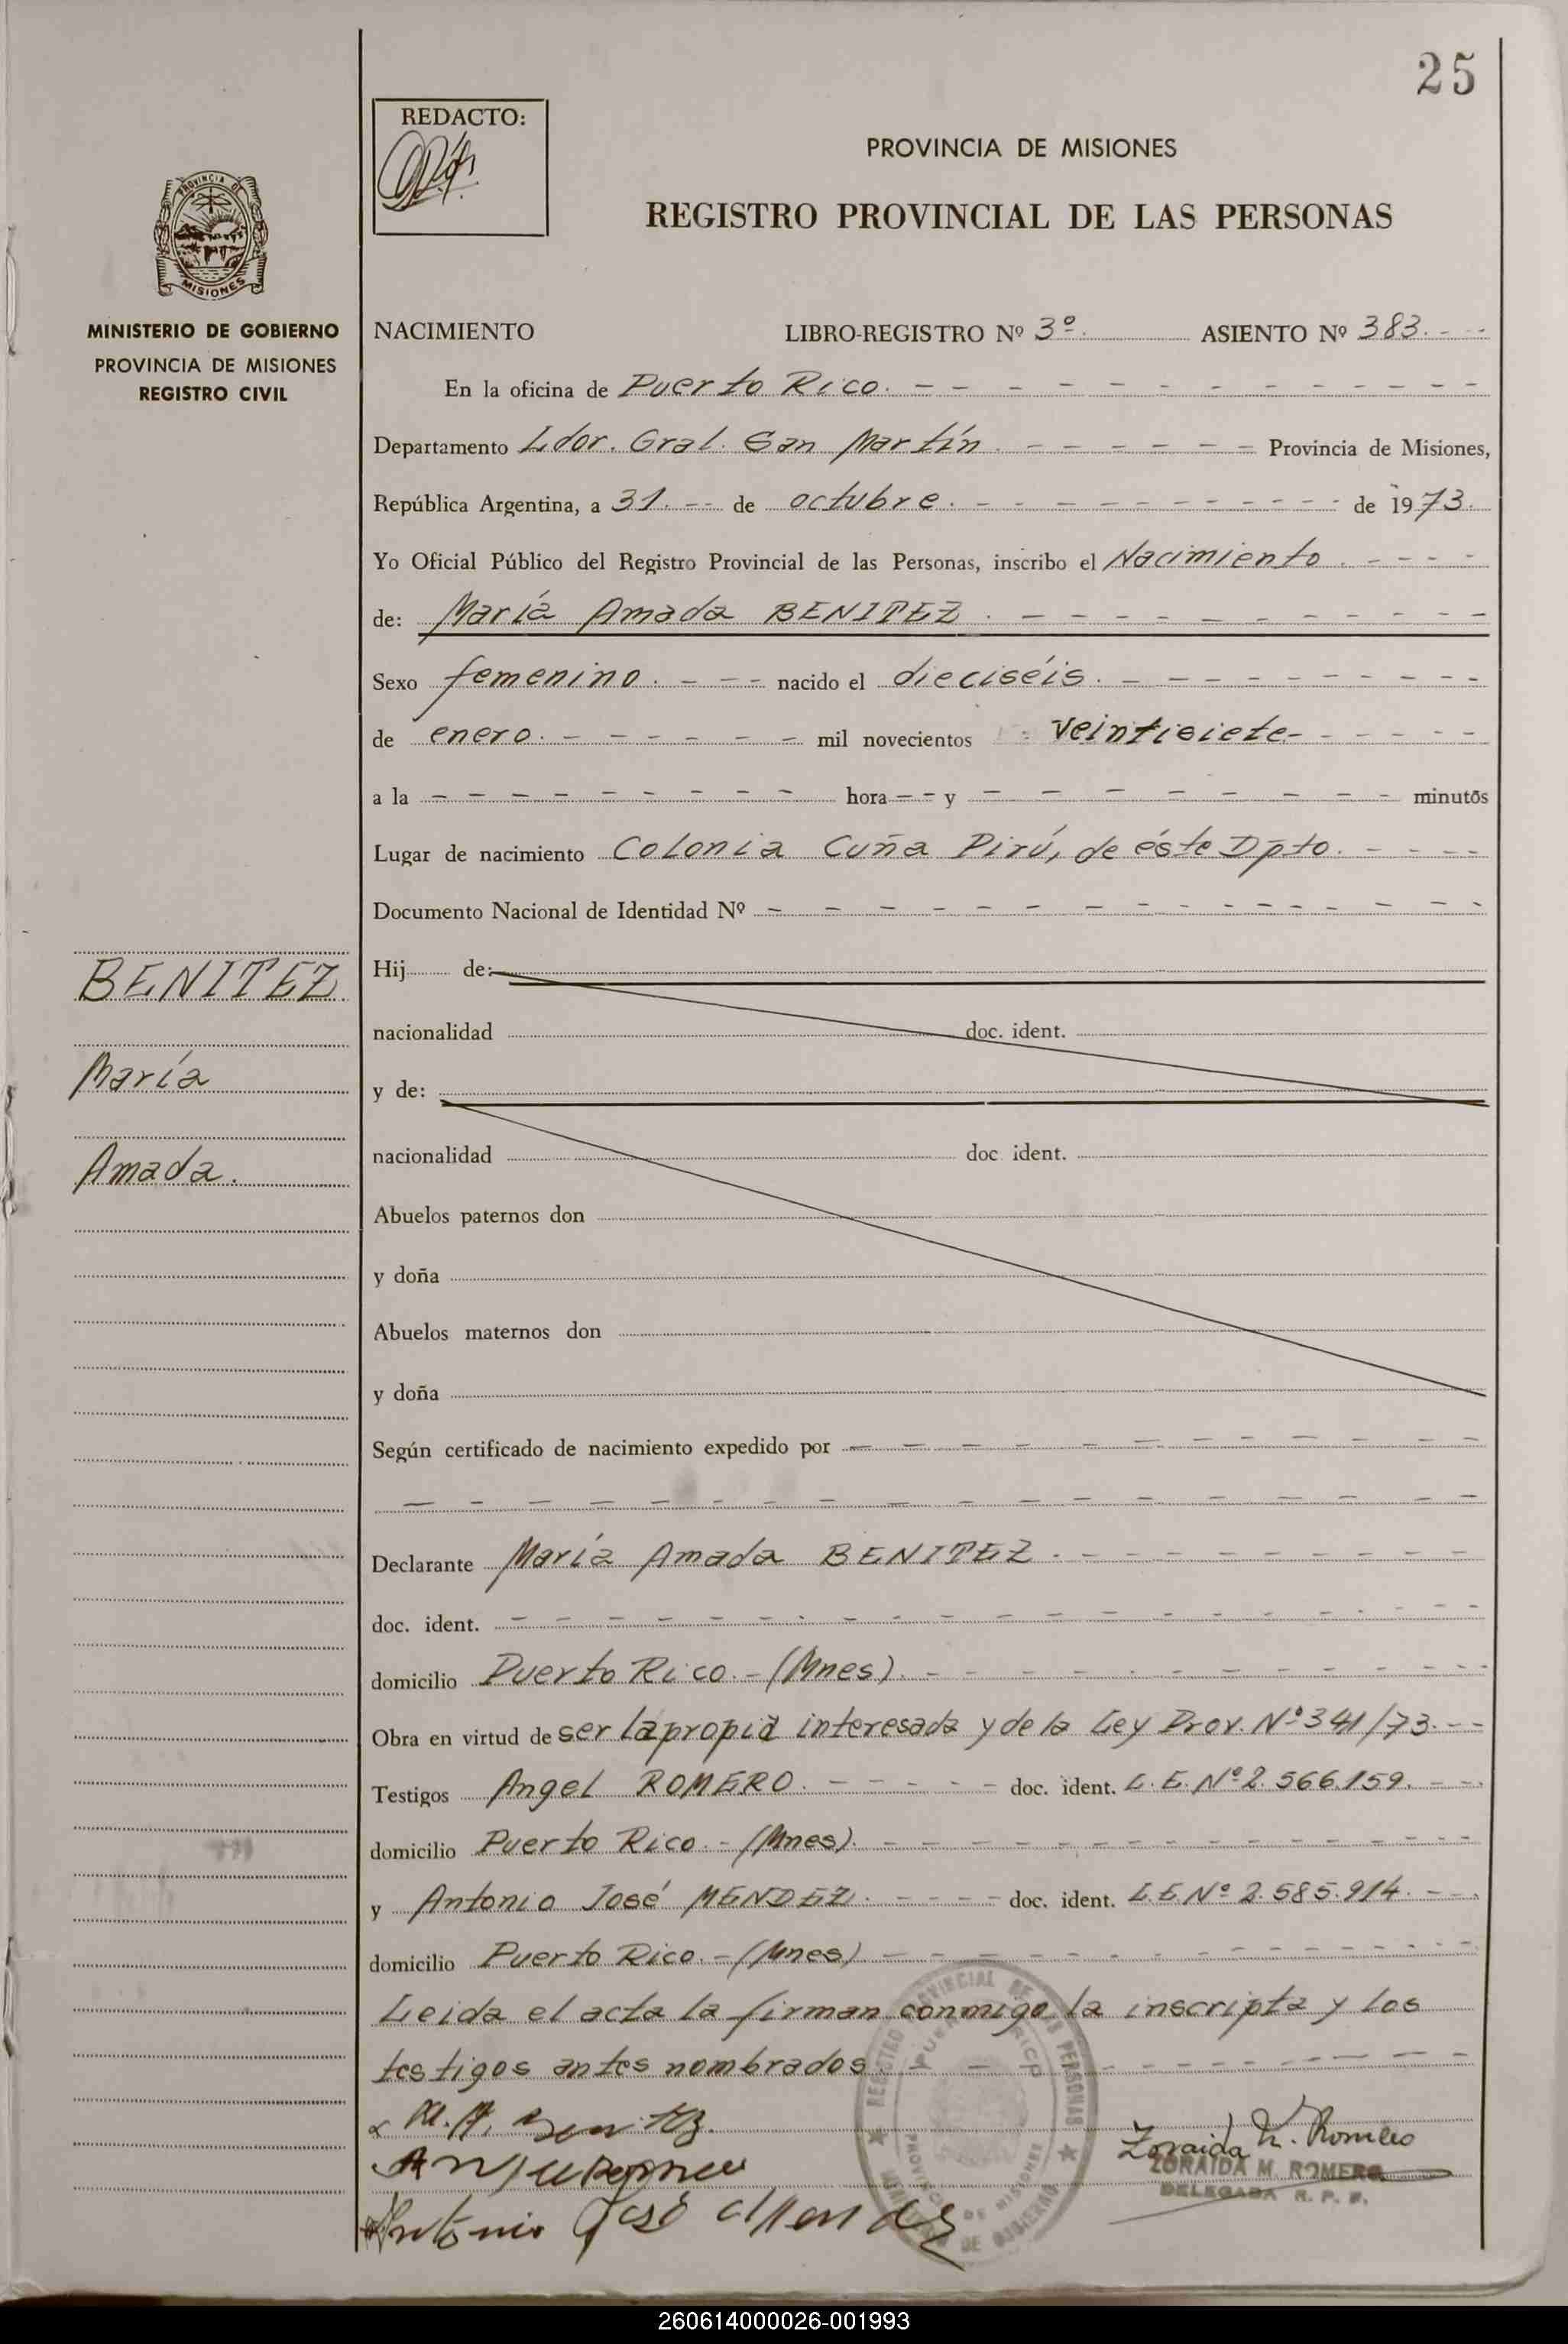 25
REDACTO:
PROVINCIA DE MISIONES
REGISTRO PROVINCIAL DE LAS PERSONAS
PROVINCIA DE
MISIONES
MINISTERIO DE GOBIERNO
PROVINCIA DE MISIONES
REGISTRO CIVIL
NACIMIENTO LIBRO-REGISTRO Nº 3º. ASIENTO Nº 383.
En la oficina de Puerto Rico.
Departamento Ldor. Gral. San Martín. Provincia de Misiones,
República Argentina, a 31. de octubre. de 1973.
Yo Oficial Público del Registro Provincial de las Personas, inscribo el Nacimiento.
de: María Amada BENITEZ.
Sexo femenino. nacido el dieciséis.
de enero. mil novecientos veintisiete
a la hora y minutos
Lugar de nacimiento Colonia Cuña Pirú, de éste Dpto.
Documento Nacional de Identidad Nº
BENITEZ.
María
Amada.
Hij de:
nacionalidad doc. ident.
y de:
nacionalidad doc ident.
Abuelos paternos don
y doña
Abuelos maternos don
y doña
Según certificado de nacimiento expedido por
Declarante María Amada BENITEZ.
doc. ident.
domicilio Puerto Rico.-(Mnes).
Obra en virtud de ser la propia interesada y de la Ley Prov. Nº 341/73.
Testigos Angel ROMERO. doc. ident. L.E. Nº 2.566.159.
domicilio Puerto Rico.-(Mnes).
y Antonio José MENDEZ. doc. ident. L.E Nº 2.585.914.
domicilio Puerto Rico.-(Mnes)
Leida el acta la firman conmigo la inscripta y los
testigos antes nombrados.
REGISTRO PROVINCIAL DE LAS PERSONAS
PUERTO RICO
PROVINCIA DE MISIONES
MINISTERIO DE GOBIERNO
M. A. Benitez.
Antonio José Mendez
Zoraida M. Romero
ZORAIDA M. ROMERO
DELEGADA R. P. P.
260614000026-001993